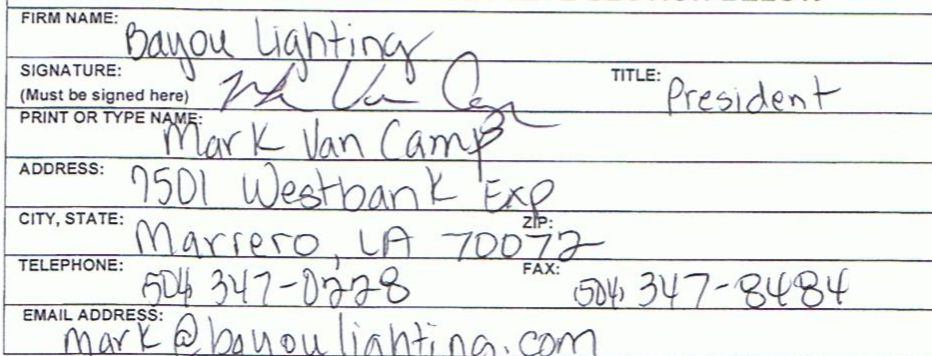 FIRM NAME: Bayou Lighting
SIGNATURE: Mark Van Camp TITLE: President
(Must be signed here)
PRINT OR TYPE NAME: Mark Van Camp
ADDRESS: 7501 Westbank Exp
CITY, STATE: Marrero, LA ZIP: 70072
TELEPHONE: (504) 347-0228 FAX: (504) 347-8484
EMAIL ADDRESS: mark@bayoulighting.com